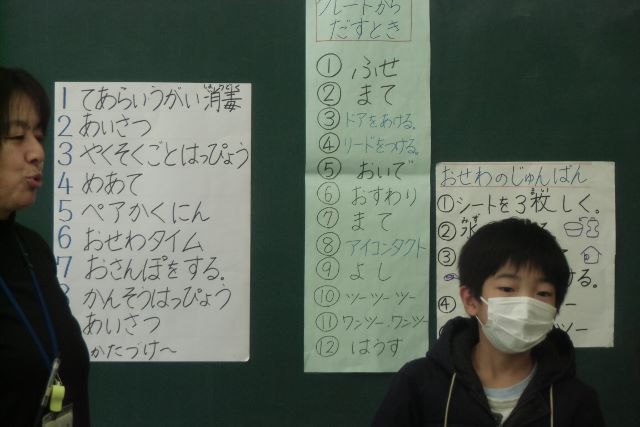 1 てあらいうがい消毒
2 あいさつ
3 やくそくごとはっぴょう
4 めあて
5 ペアかくにん
6 おせわタイム
7 おさんぽをする。
かんそうはっぴょう
あいさつ
かたづけ〜
だすとき
① ふせ
② まて
③ ドアをあける。
④ リードをつける。
⑤ おいで
⑥ おすわり
⑦ まて
⑧ アイコンタクト
⑨ よし
⑩ ツーツーツー
⑪ ワンツー、ワンツー
⑫ はうす
おせわのじゅんばん
①シートを3枚しく。
②
③
④